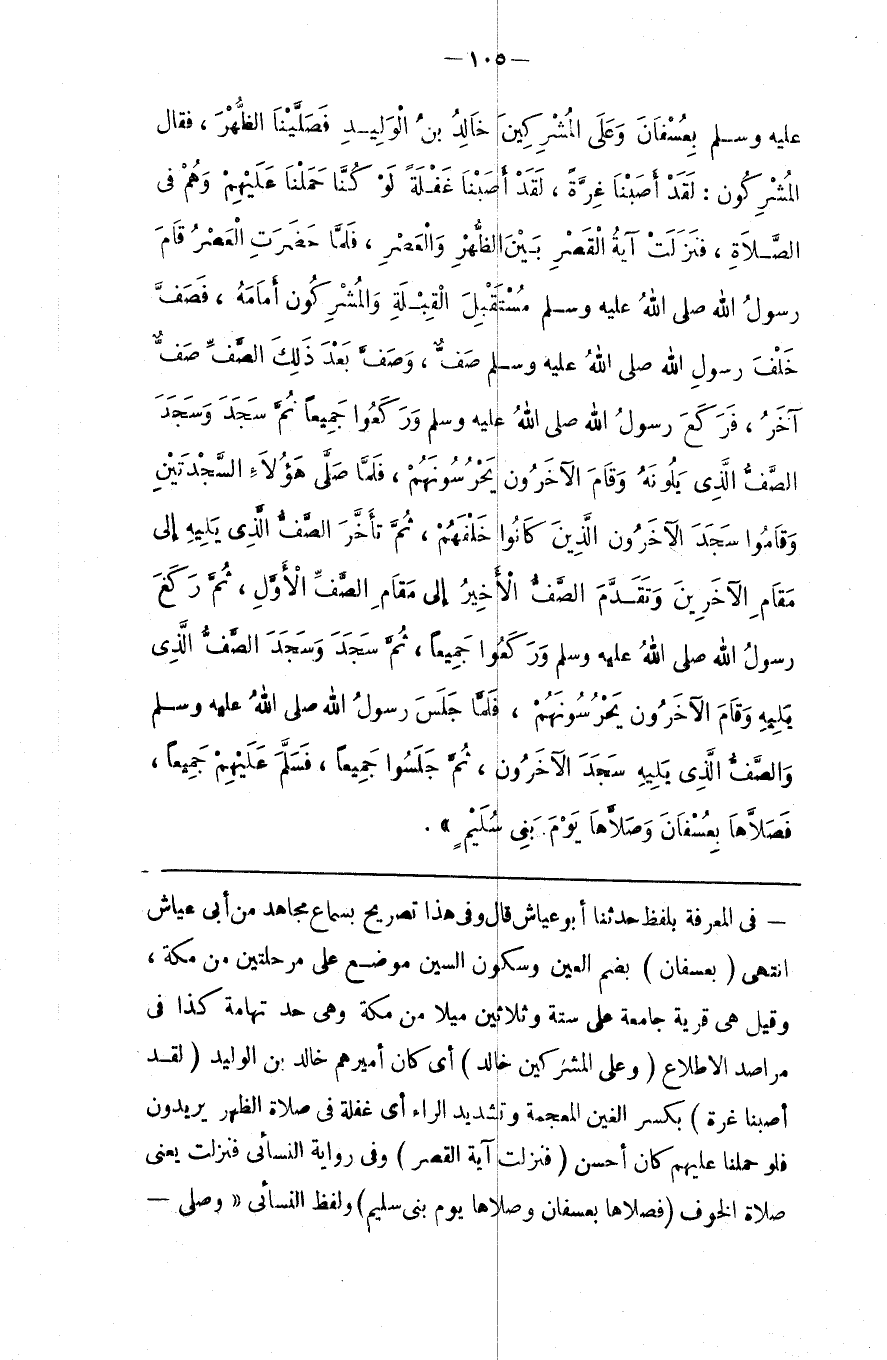 — ١٠٥ —
عليه وسلم بِعُسْفَانَ وَعَلَى الْمُشْرِكِينَ خَالِدُ بنُ الْوَلِيدِ فَصَلَّيْنَا الظُّهْرَ ، فقال
الْمُشْرِكُون : لَقَدْ أَصَبْنَا غِرَّةً ، لَقَدْ أَصَبْنَا غَفْلَةً لَوْ كُنَّا حَمَلْنَا عَلَيْهِمْ وَهُمْ فى
الصَّلاَةِ ، فَنَزَلَتْ آيَةُ الْقَصْرِ بَيْنَ الظُّهْرِ وَالْعَصْرِ ، فَلمَّا حَضَرَتِ الْعَصْرُ قَامَ
رسولُ الله صلى اللهُ عليه وسلم مُسْتَقْبِلَ الْقِبْلَةِ وَالْمُشْرِكُون أَمَامَهُ ، فَصَفَّ
خَلْفَ رسولِ الله صلى اللهُ عليه وسلم صَفٌّ ، وَصَفَّ بَعْدَ ذَلِكَ الصَّفِّ صَفٌّ
آخَرُ ، فَرَكَعَ رسولُ الله صلى اللهُ عليه وسلم وَرَكَعُوا جَمِيعاً ثُمَّ سَجَدَ وَسَجَدَ
الصَّفُّ الَّذِى يَلُونَهُ وَقَامَ الآخَرُون يَحْرُسُونَهُمْ ، فَلمَّا صَلَّى هَؤُلاَءِ السَّجْدَتَيْنِ
وَقَامُوا سَجَدَ الآخَرُون الَّذِينَ كَانُوا خَلْفَهُمْ ، ثُمَّ تأَخَّرَ الصَّفُّ الَّذِى يَلِيهِ إلى
مَقَامِ الآخَرِينَ وَتَقَدَّمَ الصَّفُّ الْأَخِيرُ إلى مَقَامِ الصَّفِّ الْأَوَّلِ ، ثُمَّ رَكَعَ
رسولُ الله صلى اللهُ عليه وسلم وَرَكَعُوا جَمِيعاً ، ثُمَّ سَجَدَ وَسَجَدَ الصَّفُّ الَّذِى
يَلِيهِ وَقَامَ الآخَرُون يَحْرُسُونَهُمْ ، فَلمَّا جَلَسَ رسولُ الله صلى اللهُ عليه وسلم
وَالصَّفُّ الَّذِى يَلِيهِ سَجَدَ الآخَرُون ، ثُمَّ جَلَسُوا جَمِيعاً ، فَسَلَّمَ عَلَيْهِمْ جَمِيعاً ،
فَصَلاَّهَا بِعُسْفَانَ وَصَلاَّهَا يَوْمَ بَنِى سُلَيْمٍ » .
— فى المعرفة بلفظ حدثنا أبو عياش قال وفى هذا تصريح بسماع مجاهد من أبى عياش
انتهى ( بعسفان ) بضم العين وسكون السين موضع على مرحلتين من مكة ،
وقيل هى قرية جامعة على ستة وثلاثين ميلا من مكة وهى حد تهامة كذا فى
مراصد الاطلاع ( وعلى المشركين خالد ) أى كان أميرهم خالد بن الوليد ( لقد
أصبنا غرة ) بكسر الغين المعجمة وتشديد الراء أى غفلة فى صلاة الظهر يريدون
فلو حملنا عليهم كان أحسن ( فنزلت آية القصر ) وفى رواية النسائى فنزلت يعنى
صلاة الخوف ( فصلاها بعسفان وصلاها يوم بنى سليم ) ولفظ النسائى « وصلى —